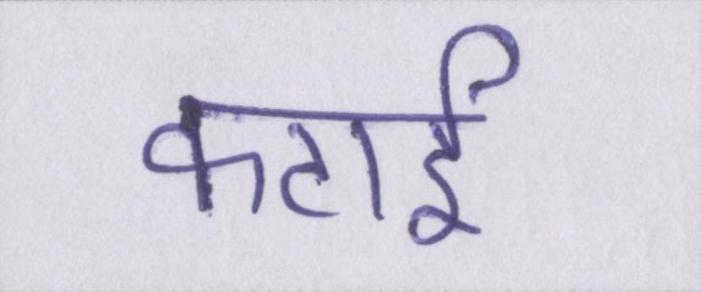 कटाई